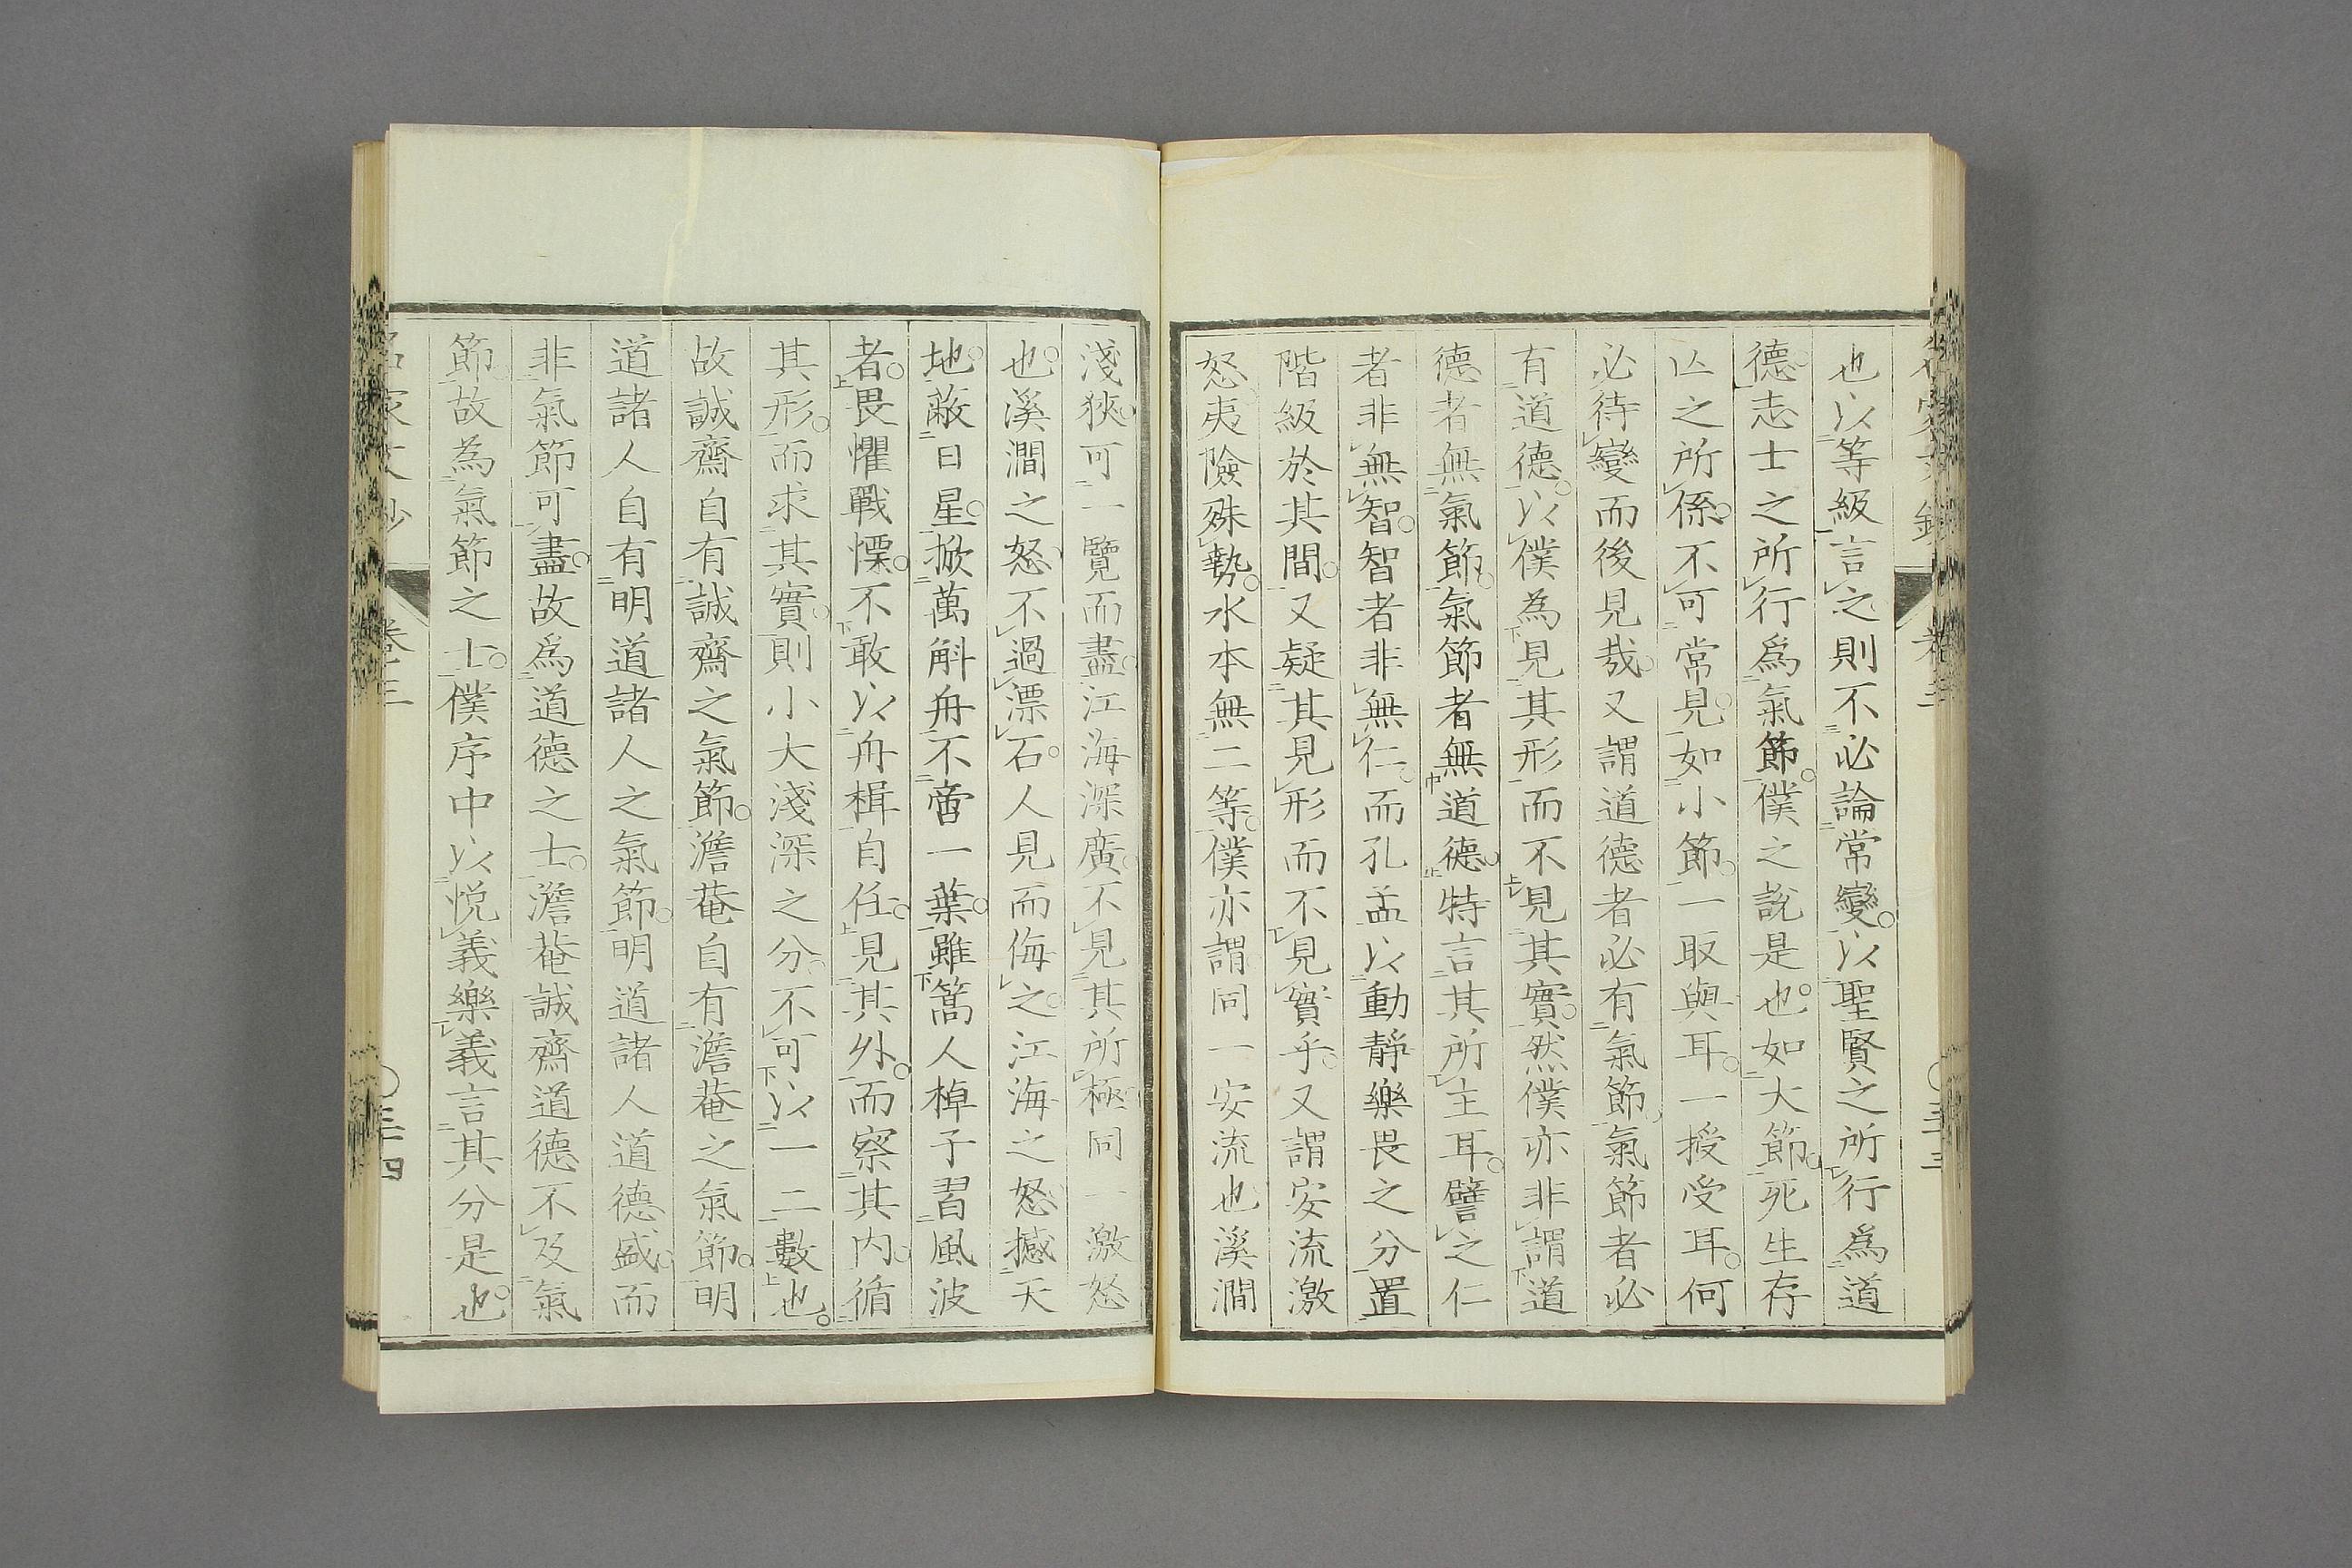 也以等級言之則不必論常變以聖賢之所行爲道
德志士之所行爲氣節僕之說是也如大節死生存
亾之所係不可常見如小節一取與耳一授受耳何
必待變而後見哉又謂道德者必有氣節氣節者必
有道德以僕為見其形而不見其實然僕亦非謂道
德者無氣節氣節者無道德特言其所主耳譬之仁
者非無智智者非無仁而孔孟以動靜樂畏之分置
階級於其間又疑其見形而不見實乎又謂安流激
怒夷險殊勢水本無二等僕亦謂同一安流也溪澗
淺狹可一覽而盡江海深廣不見其所極同一激怒
也溪澗之怒不過漂石人見而侮之江海之怒撼天
地蔽日星掀萬斛舟不啻一葉雖篙人棹子習風波
者畏懼戰慄不敢以舟楫自任見其外而察其内循
其形而求其實則小大淺深之分不可以一二數也
故誠齋自有誠齋之氣節澹菴自有澹菴之氣節明
道諸人自有明道諸人之氣節明道諸人道德盛而
非氣節可盡故爲道德之士澹菴誠齋道德不及氣
節故為氣節之士僕序中以悦義樂義言其分是也
卷三
三十四